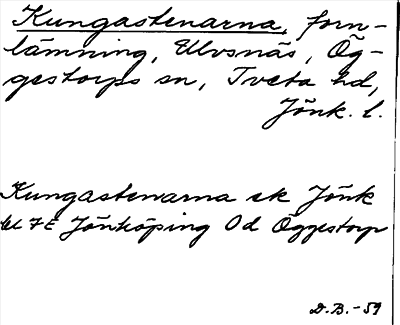 Kungastenarna, forn-
lämning, Ulvsnäs, Ög-
gestorps sn, Tveta hd,
Jönk. l.
Kungastenarna ek Jönk
bl 7E Jönköping Od Öggestorp
D.B.-59